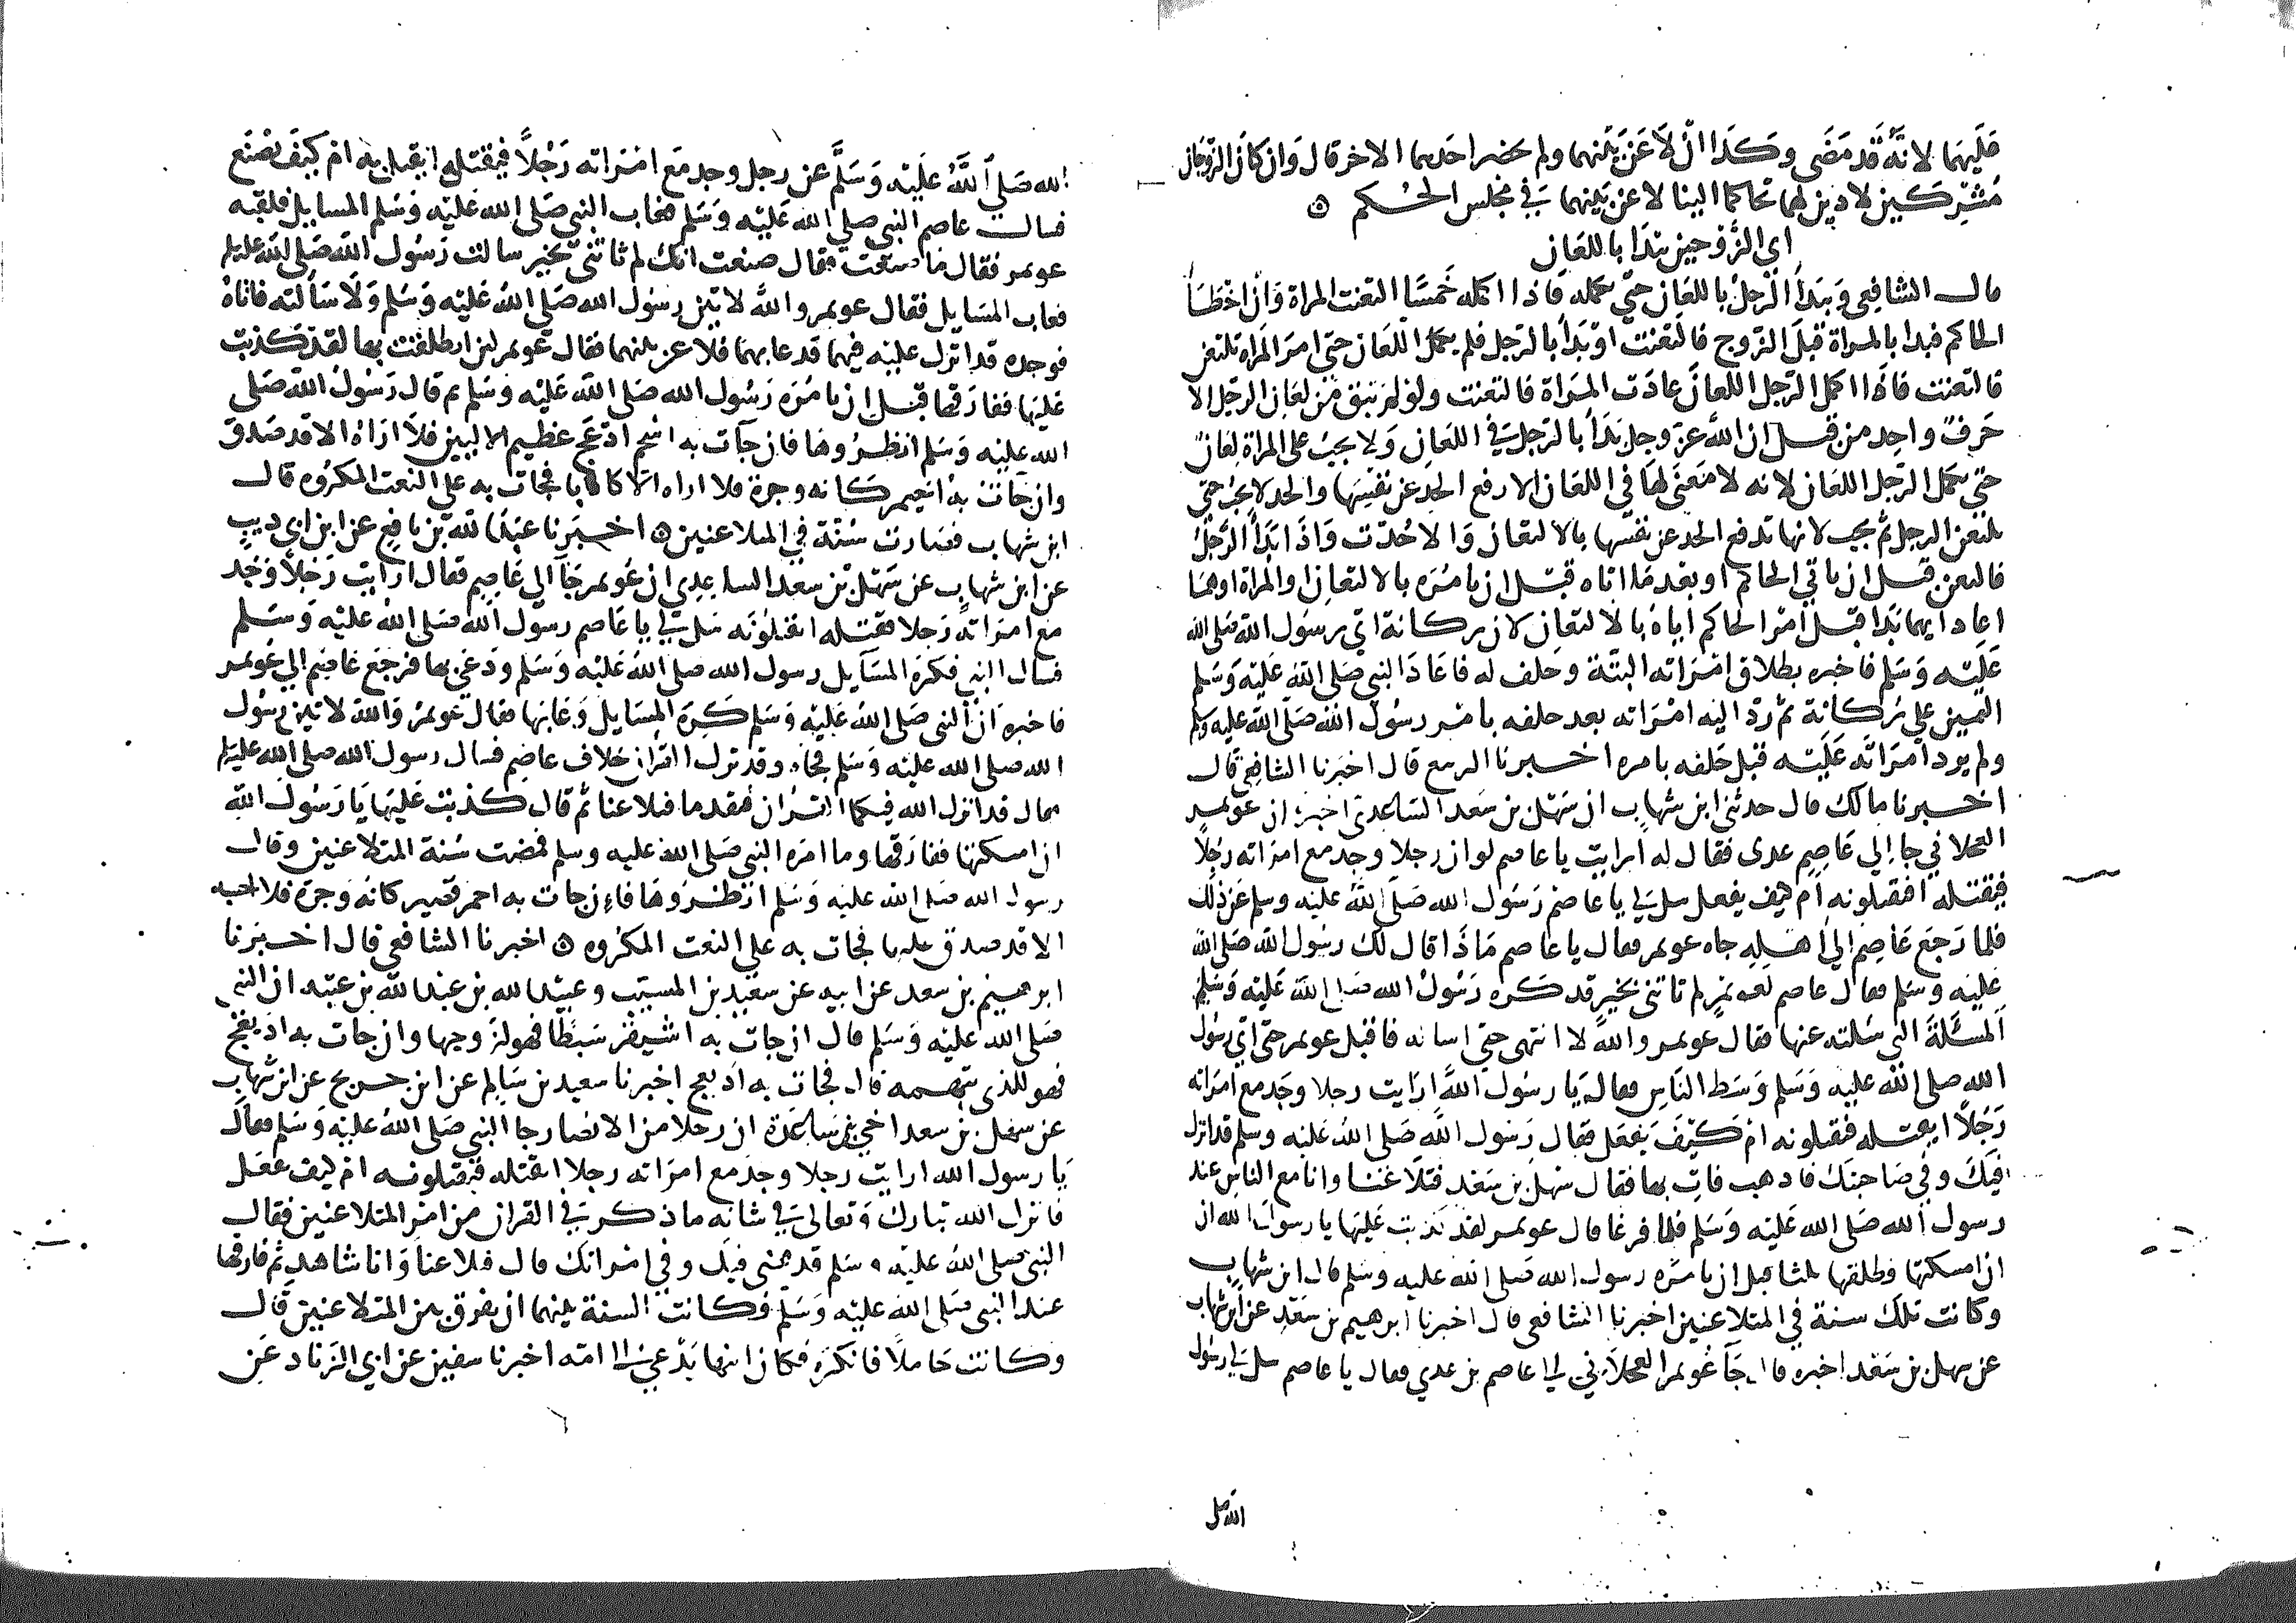 عليهما لانه قد مضى وكذا ان لاعن بينهما ولم يحضر احدهما الاخر قال وان كان الزوجان
مشركين لا دين لهما تحاكما الينا لاعن بينهما في مجلس الحكم
اي الزوجين يبدا باللعان
قال الشافعي ويبدأ الرجل باللعان حتى يكمله فاذا اكمله خمسا التعنت المراة وان اخطأ
الحاكم فبدا بالمراة قبل الزوج فالتعنت او بدأ بالرجل فلم يكمل اللعان حتى امر المراة تلتعن
فالتعنت فاذا اكمل الرجل اللعان عادت المراة فالتعنت ولو لم يبق من لعان الرجل الا
حرف واحد من قبل ان الله عز وجل بدأ بالرجل في اللعان ولا يجب على المراة لعان
حتى يكمل الرجل اللعان لانه لا معنى لها في اللعان الا رفع الحد عن نفسها والحد لا يجب حتى
يلتعن الرجل ثم يجب لانها تدفع الحد عن نفسها بالالتعان والا حدت واذا بدأ الرجل
فالتعن قبل ان ياتي الحاكم او بعد ما اتاه قبل ان يامره بالالتعان او المراة او هما
اعاد ايهما بدا قبل امر الحاكم اياه بالالتعان لان ركانة اتى رسول الله صلى الله
عليه وسلم فاخبره بطلاق امراته البتة وحلف له فاعاد النبي صلى الله عليه وسلم
اليمين على ركانة ثم رد اليه امراته بعد حلفه بامر رسول الله صلى الله عليه وسلم
ولم يرد امراته عليه قبل حلفه بامره اخبرنا الربيع قال اخبرنا الشافعي قال
اخبرنا مالك قال حدثني ابن شهاب ان سهل بن سعد الساعدي اخبره ان عويمر
العجلاني جا الى عاصم عدى فقال له ارايت يا عاصم لو ان رجلا وجد مع امراته رجلا
فيقتله افتقتلونه ام كيف يفعل سل لي يا عاصم رسول الله صلى الله عليه وسلم عن ذلك
فلما رجع عاصم الى اهله جاه عويمر فقال يا عاصم ماذا قال لك رسول الله صلى الله
عليه وسلم فقال عاصم لعويمر لم تاتني بخير قد كره رسول الله صلى الله عليه وسلم
المسئلة التي سئلته عنها فقال عويمر والله لا انتهى حتى اساله فاقبل عويمر حتى اتى رسول
الله صلى الله عليه وسلم وسط الناس فقال يا رسول الله ارايت رجلا وجد مع امراته
رجلا ايقتله فتقتلونه ام كيف يفعل فقال رسول الله صلى الله عليه وسلم قد انزل
فيك وفي صاحبتك فاذهب فات بها فقال سهل بن سعد فتلاعنا وانا مع الناس عند
رسول الله صلى الله عليه وسلم فلما فرغا قال عويمر لقد كذبت عليها يا رسول الله ان
ان امسكتها وطلقها ثلثا قبل ان يامره رسول الله صلى الله عليه وسلم قال ابن شهاب
وكانت تلك سنة في المتلاعنين اخبرنا الشافعي قال اخبرنا ابرهيم بن سعد عن ابن شهاب
عن سهل بن سعد اخبره قال جآ عويمر العجلاني الى عاصم بن عدي فقال يا عاصم سل لي رسول
الله صلى
الله صلى الله عليه وسلم عن رجل وجد مع امراته رجلا فيقتله ايقتل به ام كيف يصنع
فسال عاصم النبي صلى الله عليه وسلم فعاب النبي صلى الله عليه وسلم المسايل فلقيه
عويمر فقال ما صنعت فقال صنعت انك لم تاتني بخير سالت رسول الله صلى الله عليه وسلم
فعاب المسايل فقال عويمر والله لاتين رسول الله صلى الله عليه وسلم ولاسالته فاتاه
فوجده قد انزل عليه فيهما فدعا بهما فلاعن بينهما فقال عويمر لئن انطلقت بها لقد كذبت
عليها ففارقها قبل ان يامره رسول الله صلى الله عليه وسلم ثم قال رسول الله صلى
الله عليه وسلم انظروها فان جآت به اسحم ادعج عظيم الاليتين فلا اراه الا قد صدق
وان جات به احيمر كانه وحرة فلا اراه الا كاذبا فجات به على النعت المكروه قال
ابن شهاب فصارت سنة في المتلاعنين اخبرنا عبد الله بن نافع عن ابن ابي ذيب
عن ابن شهاب عن سهل بن سعد الساعدي ان عويمر جآ الى عاصم فقال ارايت رجلا وجد
مع امراته رجلا فقتله اتقتلونه سل لي يا عاصم رسول الله صلى الله عليه وسلم
فسال النبي فكره المسآيل رسول الله صلى الله عليه وسلم وعابها فرجع عاصم الى عويمر
فاخبره ان النبي صلى الله عليه وسلم كره المسايل وعابها فقال عويمر والله لاتين رسول
الله صلى الله عليه وسلم فجاه وقد نزل القران خلاف عاصم فسال رسول الله صلى الله عليه وسلم
فقال قد انزل الله فيكما القران فتقدما فتلاعنا ثم قال كذبت عليها يا رسول الله
ان امسكتها ففارقها وما امره النبي صلى الله عليه وسلم فمضت سنة المتلاعنين وقال
رسول الله صلى الله عليه وسلم انظروها فان جات به احمر قصير كانه وحرة فلا احسبه
الا قد صدق عليها فجات به على النعت المكروه اخبرنا الشافعي قال اخبرنا
ابرهيم بن سعد عن ابيه عن سعيد بن المسيب وعبيد الله بن عبد الله بن عتبه ان النبي
صلى الله عليه وسلم قال ان جات به اشيقر سبطا فهو لزوجها وان جات به اديعج
فهو للذي يتهمه قال فجات به اديعج اخبرنا سعيد بن سالم عن ابن جريج عن ابن شهاب
عن سهل بن سعد اخي بني ساعدة ان رجلا من الانصار جا النبي صلى الله عليه وسلم فقال
يا رسول الله ارايت رجلا وجد مع امراته رجلا ايقتله فتقتلونه ام كيف يفعل
فانزل الله تبارك وتعالى في شانه ما ذكر في القران من امر المتلاعنين فقال
النبي صلى الله عليه وسلم قد قضى فيك وفي امراتك قال فلاعنا وانا شاهد ثم فارقها
عند النبي صلى الله عليه وسلم فكانت السنة بينهما ان يفرق بين المتلاعنين قال
وكانت حاملا فانكره فكان ابنها يدعى الى امه اخبرنا سفين عن ابي الزناد عن